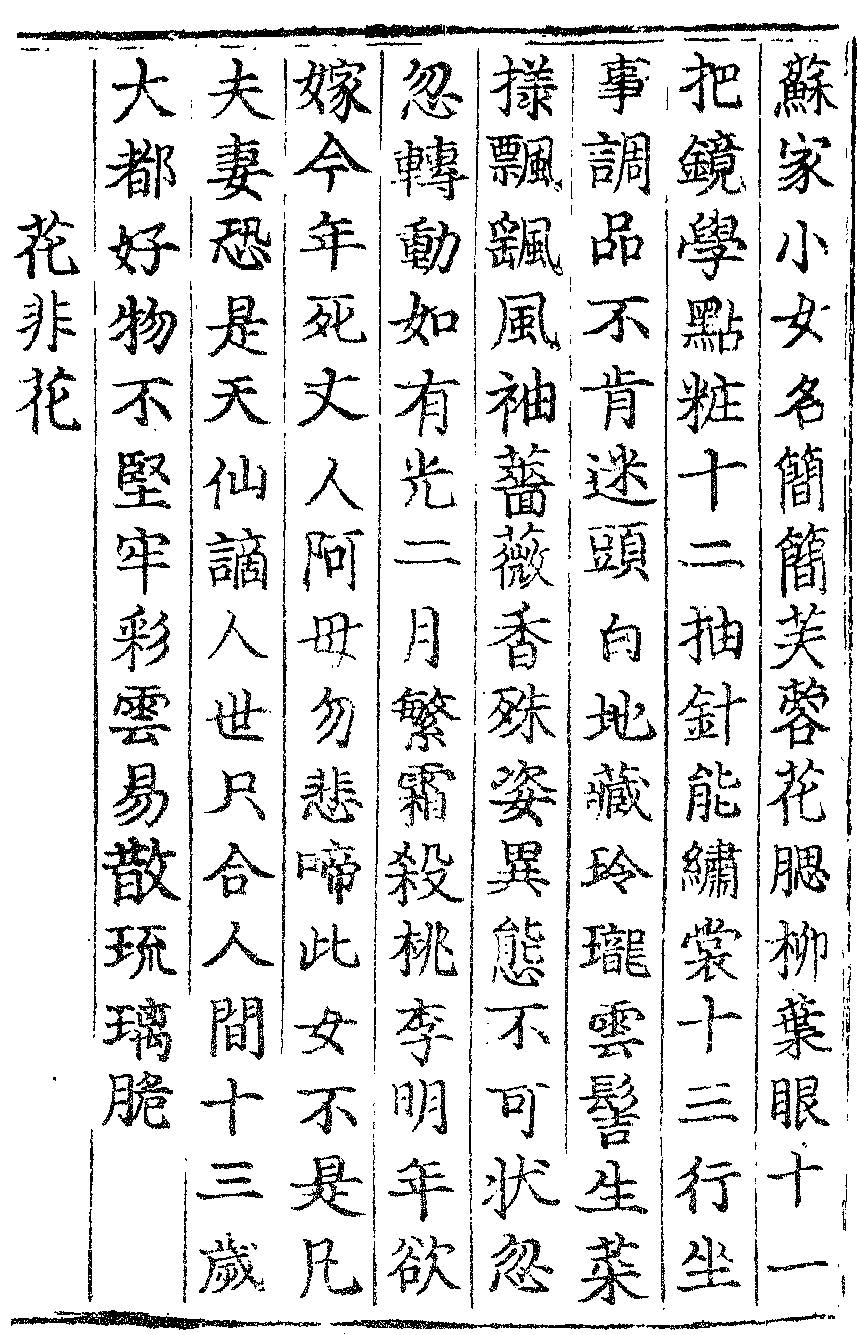 蘇家小女名簡簡芙蓉花腮柳葉眼十一
把鏡學點粧十二抽針能繡裳十三行坐
事調品不肯迷頭白地藏玲瓏雲髻生菜
㨾飄颻風袖薔薇香殊姿異態不可狀忽
忽轉動如有光二月繁霜殺桃李明年欲
嫁今年死丈人阿母勿悲啼此女不是凡
夫妻恐是天仙謫人世只合人間十三歲
大都好物不堅牢彩雲易散琉璃脆
花非花